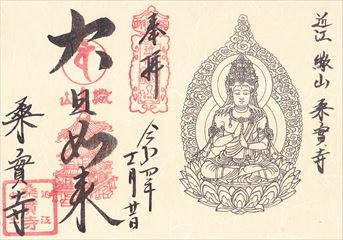 近江 繖山 桑實寺
奉拝
令和四年
十一月廿日
大日如来
桑實寺